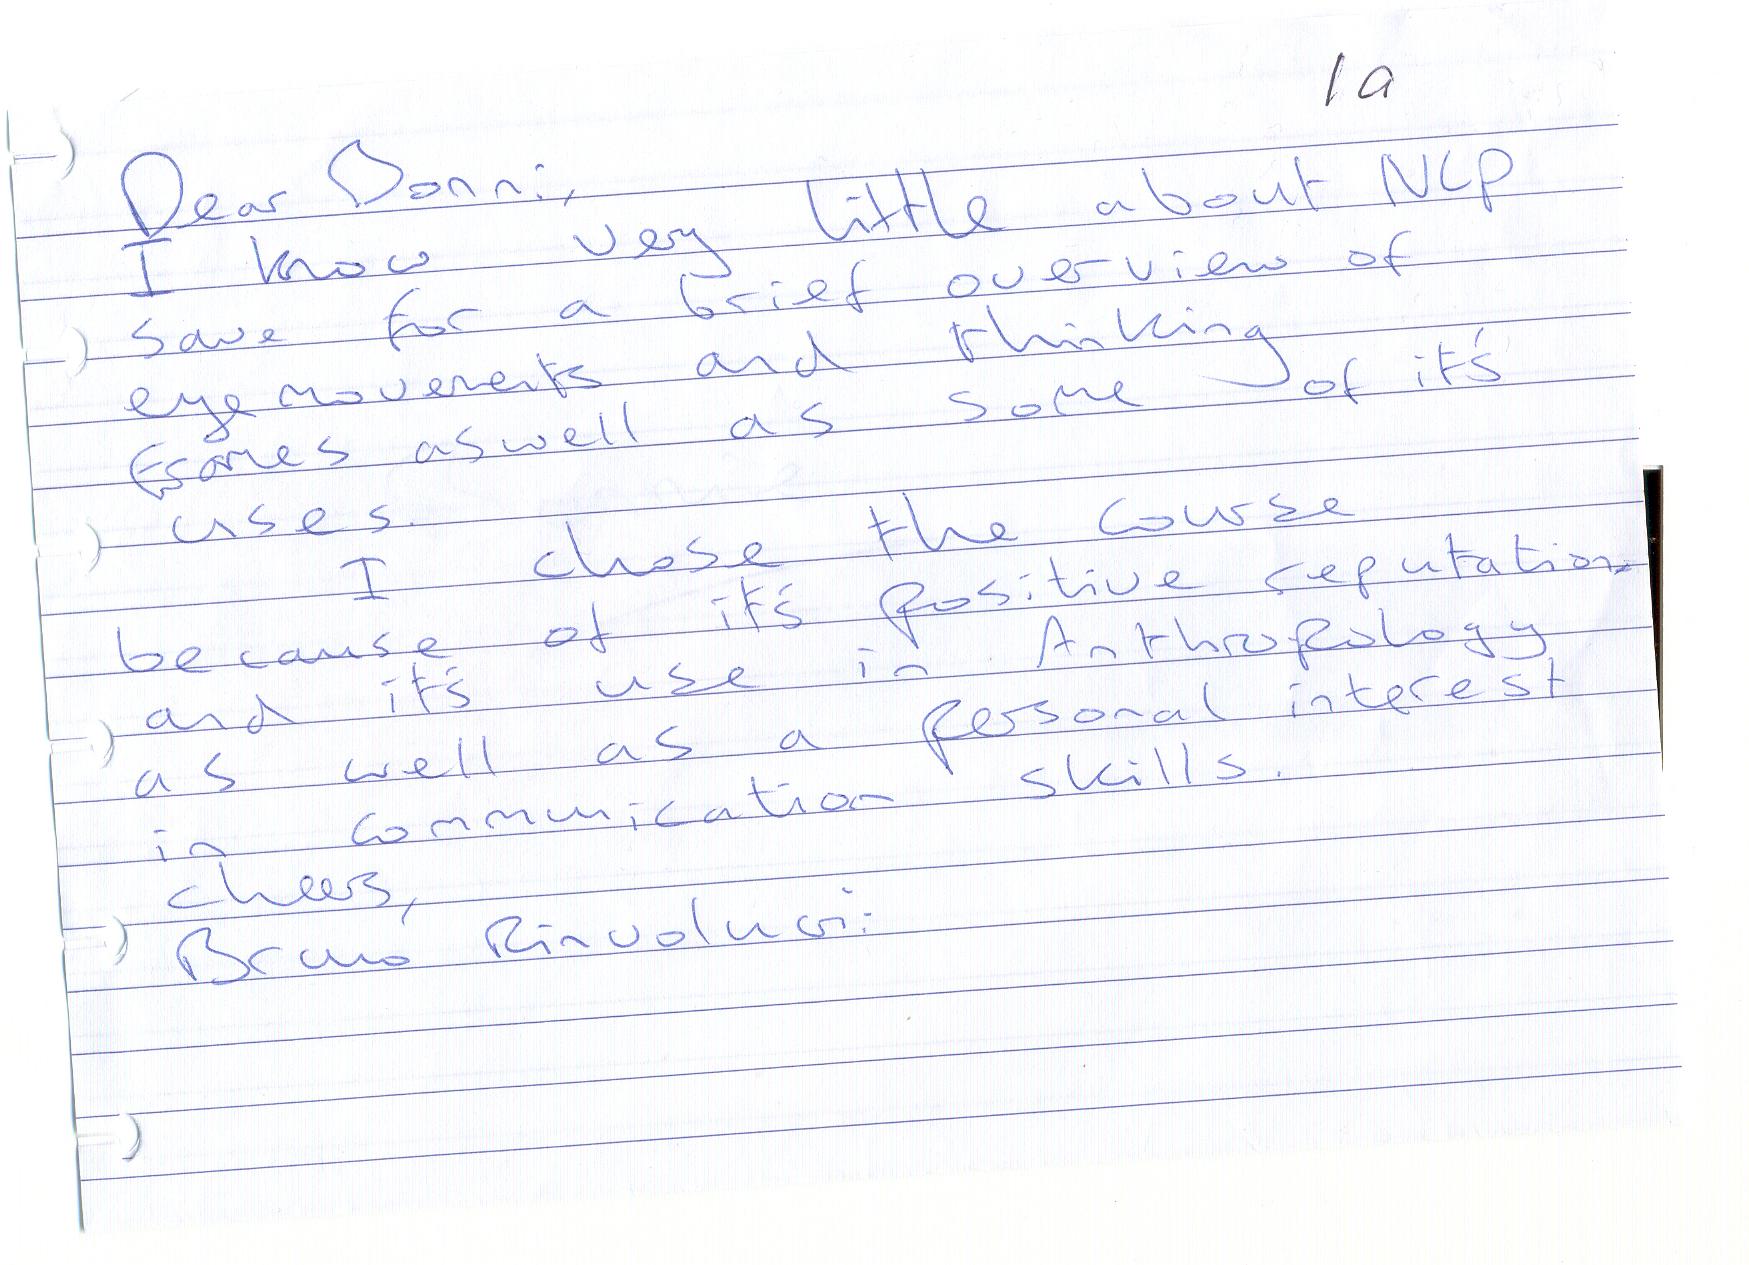 1a
Dear Bonni,
I know very little about NLP
save for a brief overview of
eye movements and thinking
frames aswell as some of it's
uses.
I chose the course
because of it's positive reputation
and it's use in Anthropology
as well as a personal interest
in communication skills.
cheers,
Bruno Rinvolucri